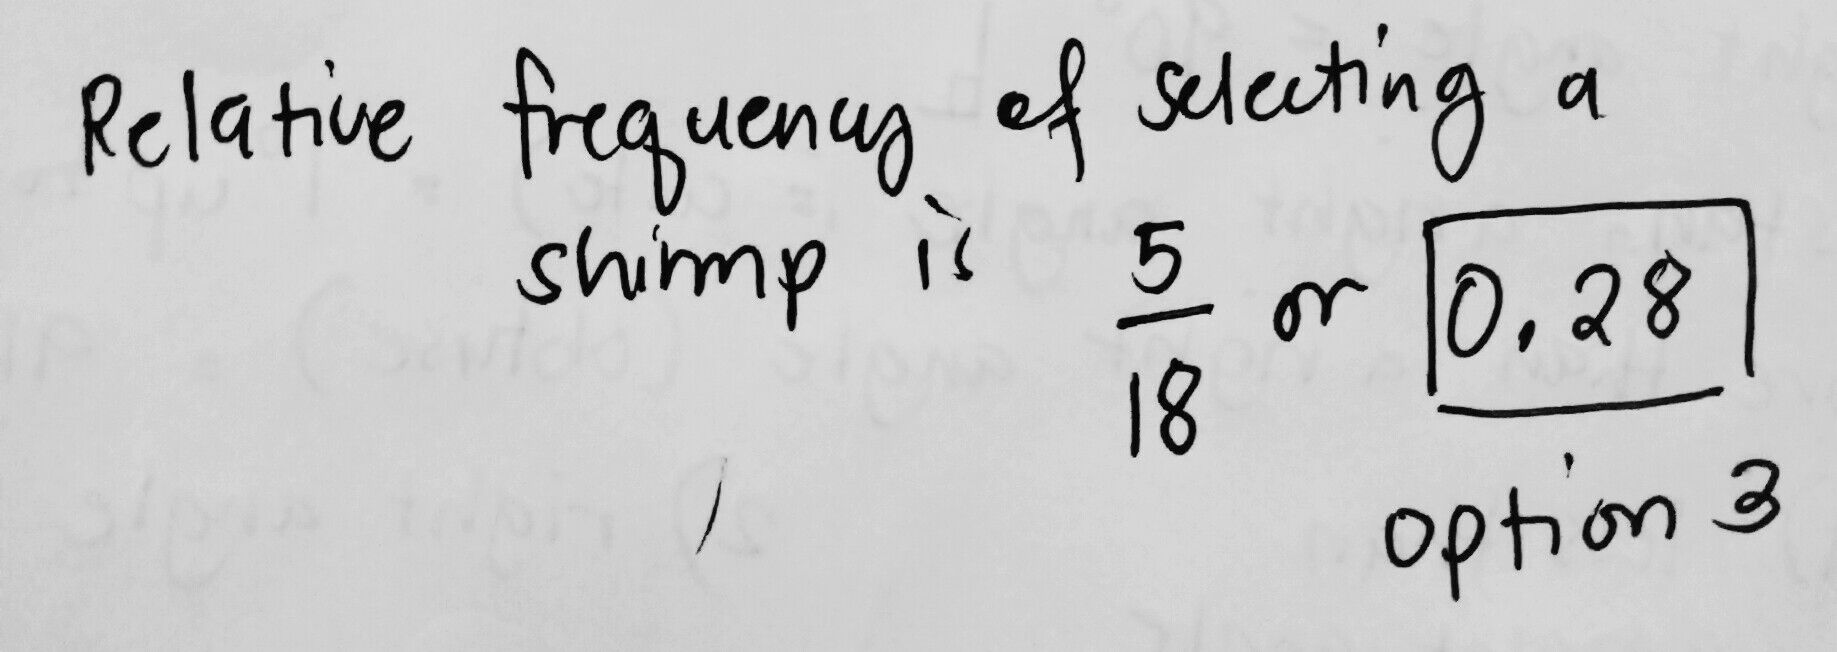 Relative frequency of selecting a
shimp is 5/18 or 0.28
option 3